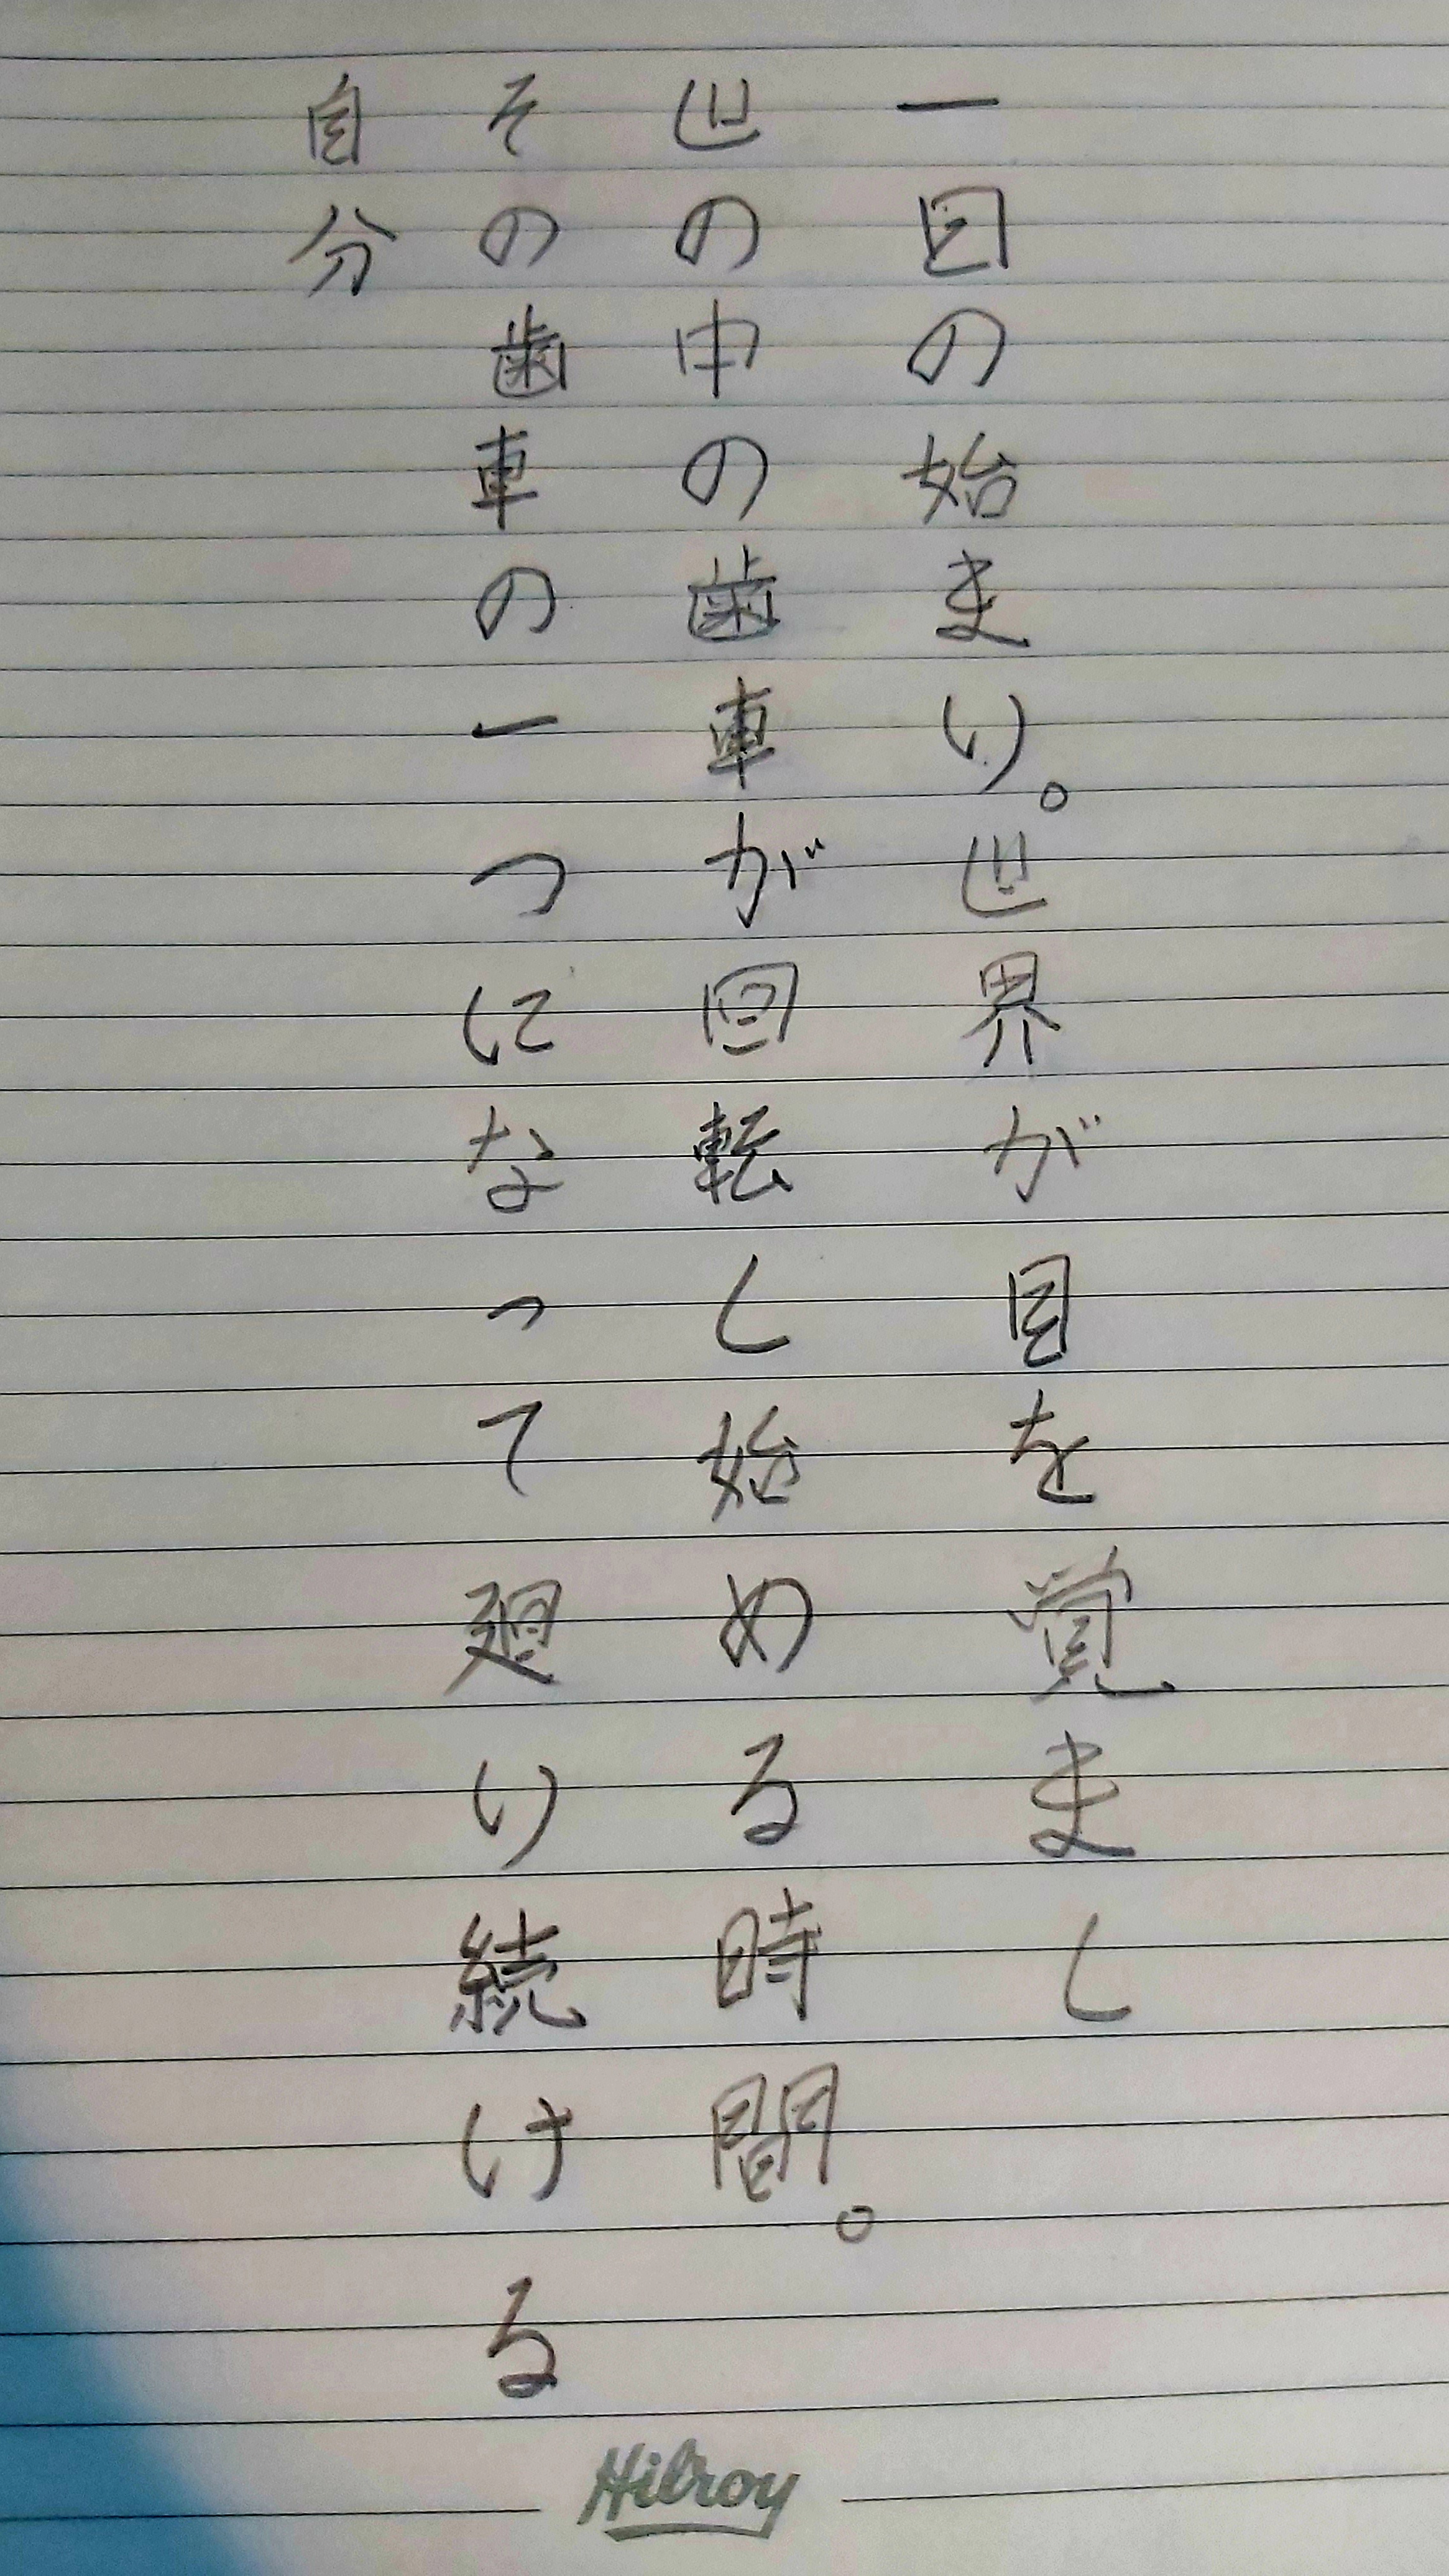 一日の始まり。世界が目を覚まし
世の中の歯車が回転し始める時間。
その歯車の一つになって廻り続ける
自分
Hilroy